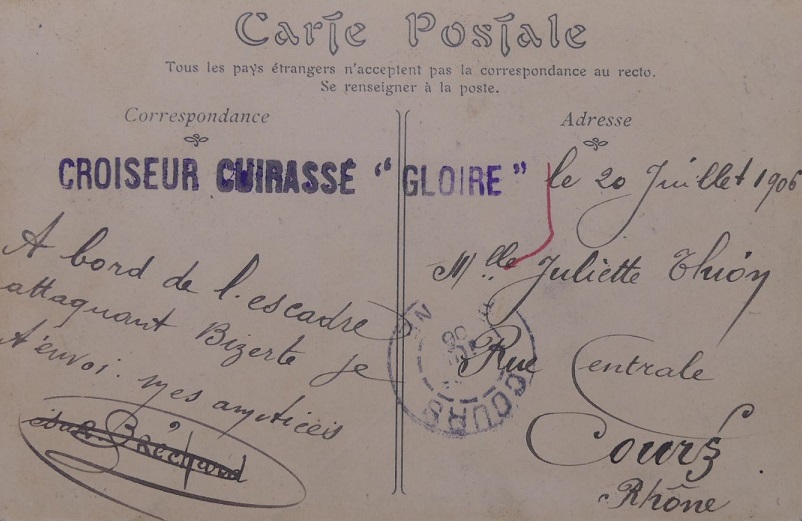 Carte Postale
Tous les pays étrangers n'acceptent pas la correspondance au recto.
Se renseigner à la poste.
Correspondance
Adresse
CROISEUR CUIRASSÉ "GLOIRE"
le 20 Juillet 1906
A bord de l'escadre
attaquant Bizerte je
t'envoi mes amitiées
Mlle Juliette Thion
Rue Centrale
Cours
Rhône
COURS